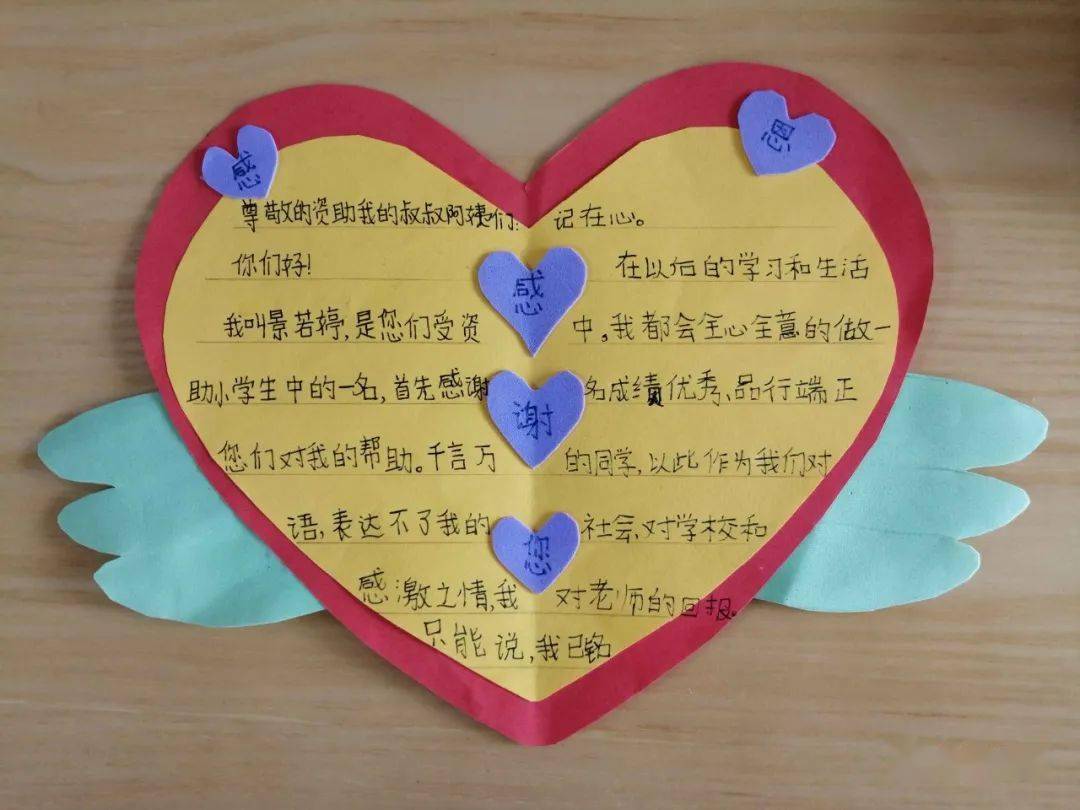 感
恩
感
谢
您
尊敬的资助我的叔叔阿姨们:
你们好!
我叫景若婷,是您们受资
助小学生中的一名,首先感谢
您们对我的帮助。千言万
语,表达不了我的
感激之情,我
只能说,我已铭
记在心。
在以后的学习和生活
中,我都会全心全意的做一
名成绩优秀、品行端正
的同学,以此作为我们对
社会、对学校和
对老师的回报。